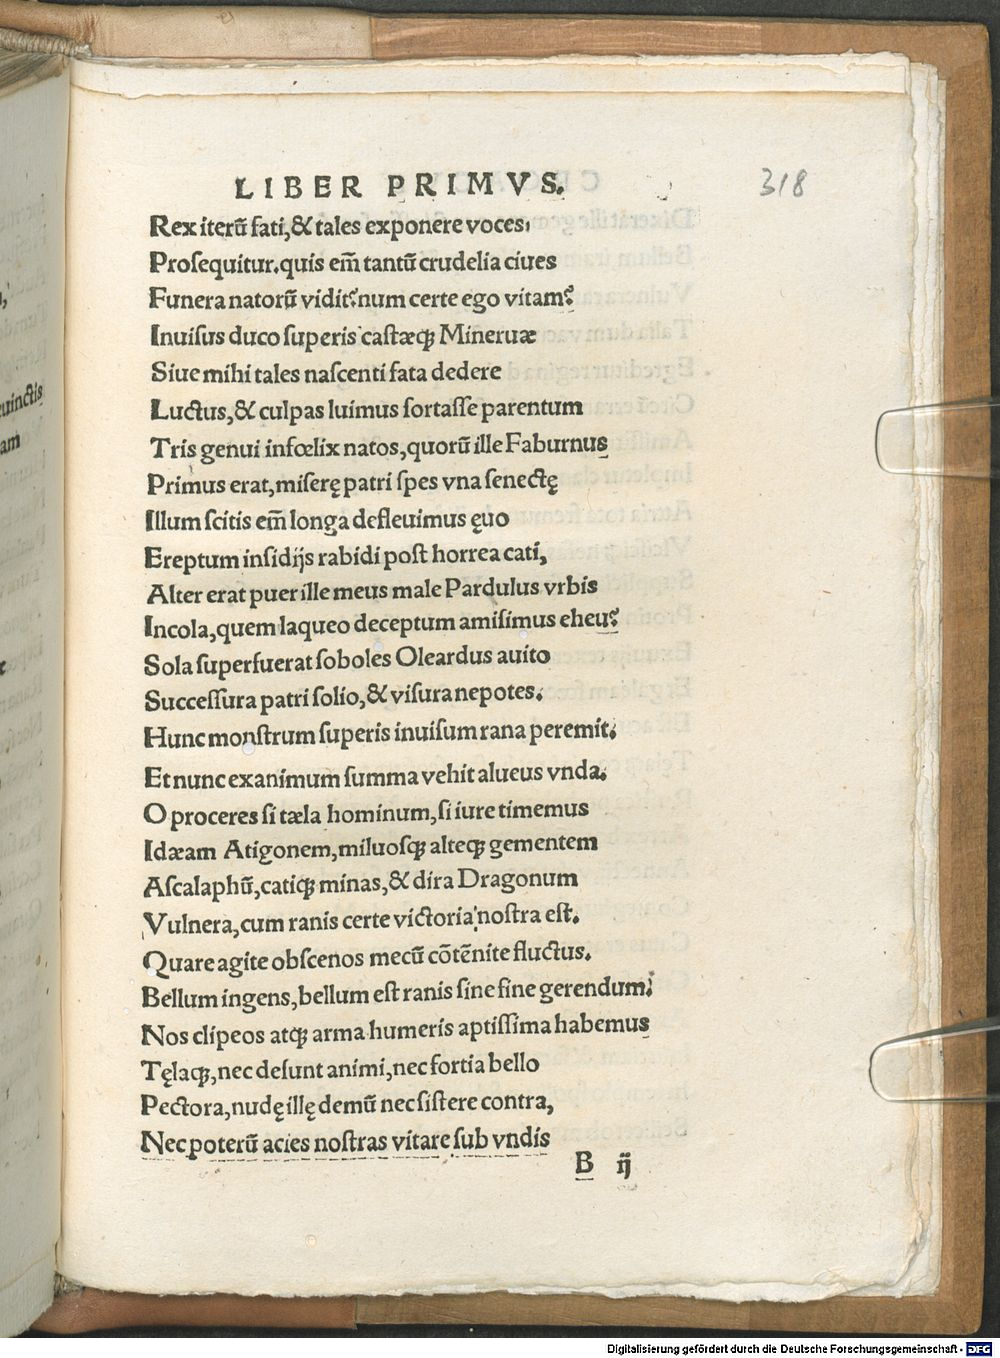 LIBER PRIMVS.
318
Rex iterū fati,& tales exponere voces,
Prosequitur.quis em̄ tantū crudelia ciues
Funera natorū vidit?num certe ego vitam?
Inuisus duco superis castæq; Mineruæ
Siue mihi tales nascenti fata dedere
Luctus,& culpas luimus fortasse parentum
Tris genui infœlix natos,quorū ille Faburnus
Primus erat,miserę patri spes vna senectę
Illum scitis em̄ longa defleuimus ęuo
Ereptum insidijs rabidi post horrea cati,
Alter erat puer ille meus male Pardulus vrbis
Incola,quem laqueo deceptum amisimus eheu?
Sola superfuerat soboles Oleardus auito
Successura patri solio,& visura nepotes.
Hunc monstrum superis inuisum rana peremit.
Et nunc exanimum summa vehit alueus vnda.
O proceres si tæla hominum,si iure timemus
Idæam Atigonem,miluosq; alteq; gementem
Ascalaphū,catiq; minas,& dira Dragonum
Vulnera,cum ranis certe victoria nostra est.
Quare agite obscenos mecū cōtēnite fluctus.
Bellum ingens,bellum est ranis sine fine gerendum.
Nos clipeos atq; arma humeris aptissima habemus
Tęlaq;,nec desunt animi,nec fortia bello
Pectora,nudę illę demū nec sistere contra,
Nec poterū acies nostras vitare sub vndis
B ij
uinctis
am
Digitalisierung gefördert durch die Deutsche Forschungsgemeinschaft - DFG